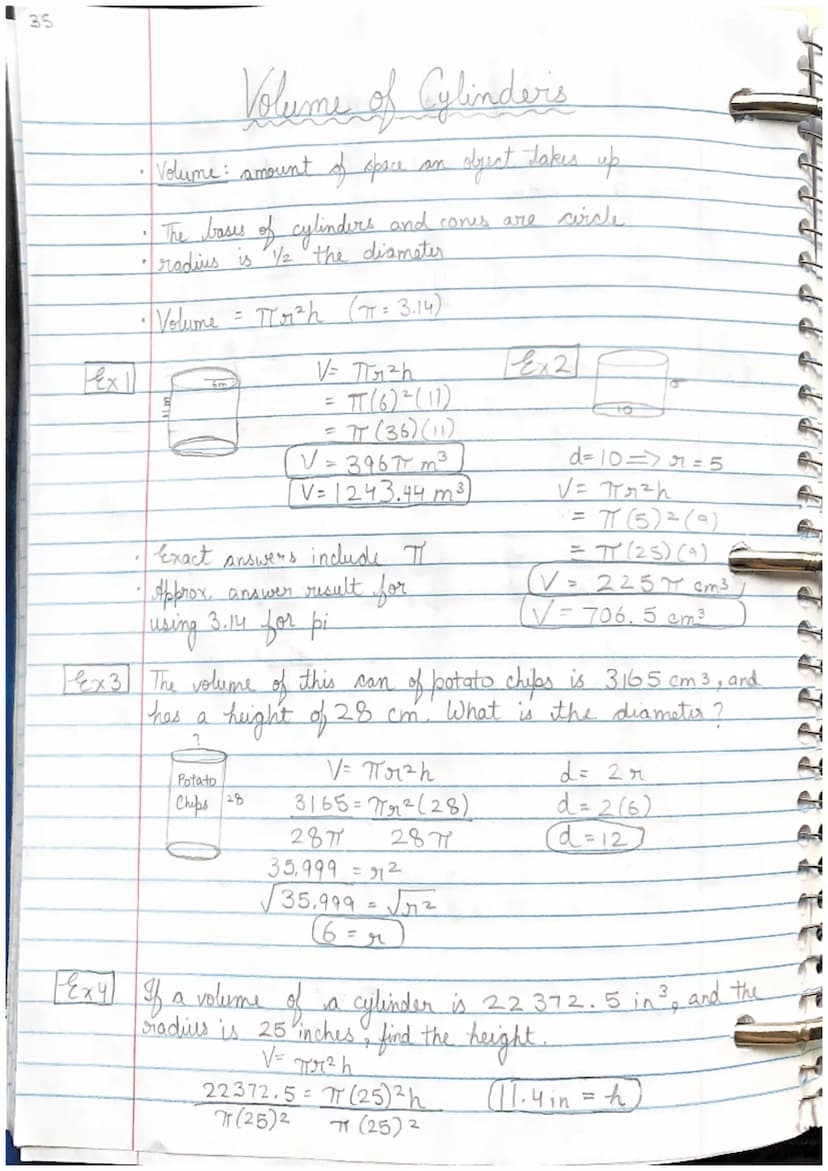 35
Volume of Cylinders
· Volume: amount of space an object takes up
· The bases of cylinders and cones are circle
· radius is 1/2 the diameter
· Volume = πr²h (π = 3.14)
Ex1
6m
11m
V = πr²h
= π(6)²(11)
= π(36)(11)
V = 396π m³
V = 1243.44 m³
Ex2
10
d=10 => r = 5
V = πr²h
= π(5)²(9)
= π(25)(9)
V = 225π cm³
V = 706.5 cm³
· Exact answers include π
· Approx. answer result for
using 3.14 for pi
Ex3
The volume of this can of potato chips is 3165 cm3, and
has a height of 28 cm. What is the diameter?
?
Potato
Chips
28
V = πr²h
3165 = πr²(28)
28π 28π
35,999 = r²
√35,999 = √r²
6 = r
d = 2r
d = 2(6)
d = 12
Ex4
If a volume of a cylinder is 22372.5 in³, and the
radius is 25 inches, find the height.
V = πr²h
22372.5 = π(25)²h
π(25)² π(25)²
11.4in = h